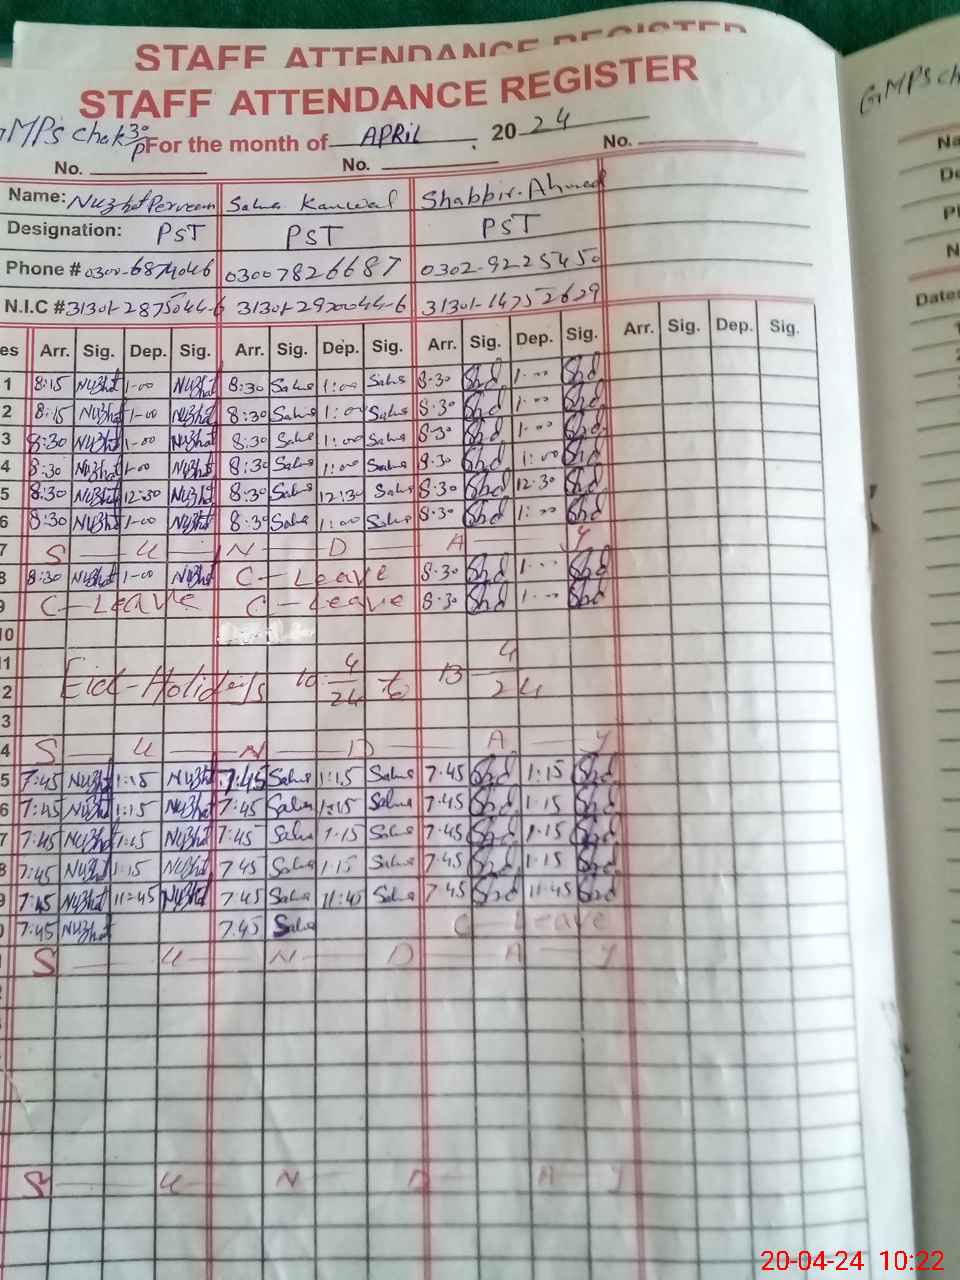 STAFF ATTENDANCE REGISTER
STAFF ATTENDANCE REGISTER
GMPS chak 30/P For the month of APRIL, 2024
No. No. No.
Name: Nuzhat Perveen Salwa Kanwal Shabbir Ahmed
Designation: PST PST PST
Phone # 0300-6874046 03007826687 0302-9225450
N.I.C # 31301-2875044-6 31301-2920044-6 31301-14752629
es Arr. Sig. Dep. Sig. Arr. Sig. Dep. Sig. Arr. Sig. Dep. Sig. Arr. Sig. Dep. Sig.
1 8:15 Nuzhat 1-00 Nuzhat 8:30 Salwa 1:00 Salwa 8.30 Shd 1.00 Shd
2 8:15 Nuzhat 1-00 Nuzhat 8:30 Salwa 1:00 Salwa 8.30 Shd 1.00 Shd
3 8:30 Nuzhat 1-00 Nuzhat 8:30 Salwa 1:00 Salwa 8.30 Shd 1.00 Shd
4 8:30 Nuzhat 1-00 Nuzhat 8:30 Salwa 1:00 Salwa 8.30 Shd 1:00 Shd
5 8:30 Nuzhat 12:30 Nuzhat 8:30 Salwa 12:30 Salwa 8.30 Shd 12.30 Shd
6 8:30 Nuzhat 1-00 Nuzhat 8:30 Salwa 1:00 Salwa 8.30 Shd 1:00 Shd
7 S U N D A Y
8 8:30 Nuzhat 1-00 Nuzhat C-Leave 8.30 Shd 1.00 Shd
9 C-Leave C-Leave 8.30 Shd 1.00 Shd
10
11
2 Eid-Holidays 10 4/24 to 13 4/24
3
4 S U N D A Y
5 7:45 Nuzhat 1:15 Nuzhat 7:45 Salwa 1:15 Salwa 7.45 Shd 1:15 Shd
6 7:45 Nuzhat 1:15 Nuzhat 7:45 Salwa 1:15 Salwa 7.45 Shd 1.15 Shd
7 7:45 Nuzhat 1:15 Nuzhat 7:45 Salwa 1.15 Salwa 7.45 Shd 1.15 Shd
8 7:45 Nuzhat 1:15 Nuzhat 7.45 Salwa 1.15 Salwa 7.45 Shd 1.15 Shd
9 7:45 Nuzhat 11:45 Nuzhat 7.45 Salwa 11:45 Salwa 7.45 Shd 11.45 Shd
7:45 Nuzhat 7.45 Salwa C-Leave
S U N D A Y
S U N D A Y
GMPS ch
Na
De
N
Dates
20-04-24 10:22